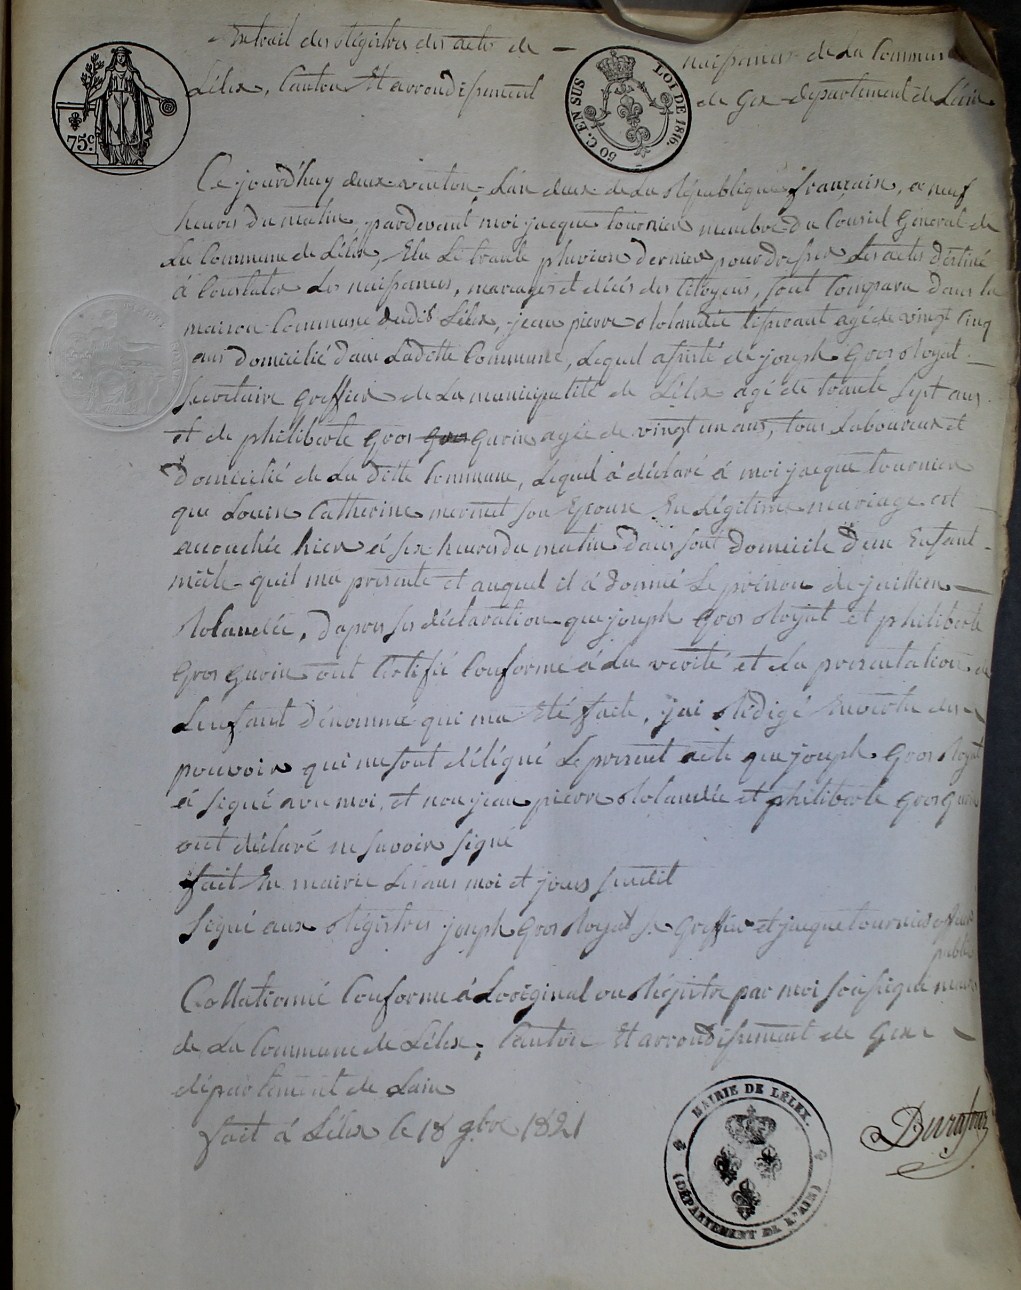 Extrait des Régistres des actes de naissances de la Commune
Lélex, Canton Et arrondissement de Gex département de Lain
75 c.
50 C. EN SUS LOI DE 1816.
Ce jourd'huy deux vantos, L'an deux de La République française, a neuf
heures du matin, pardevant moi jacque tournier membre du Conseil Général de
La Commune de Lélex, Elu Le trante pluviose dernier pour dresser Les actes destiné
à Constater Les naissances, mariages et décés des Citoyens, sont Comparu dans la
maison Commune dudit Lélex, jean pierre Rolandée agé de vingt cinq
ans domicilié dans Ladette Commune, Lequel assisté de joseph Gros Royat
Secretaire Greffier de La municipalité de Lélex agé de trante sept ans
et de philiberte Gros Gros Gurin agée de vingt un ans, tous Laboureux et
Domicilié de La Dette Commune, Lequel à déclaré à moi jacque tournier
que Louise Catherine mermet son Epouse En Légitime mariage est
accouchée hier à six heures du matin dans sont domicile d'un Enfant
mâle quil ma présenté et auquel il à donné Le prénom de jullien
Rolandée, d'apres ses déclaration que joseph Gros Royat et philiberte
Gros gurin ont Certifié Conforme à La vérité et La présentation de
Lenfant dénommé qui ma Eté faite, j'ai Rédigé Envertu des
pouvoir qui me sont délégué Le présent acte que joseph Gros Royat
à signé avec moi, et non jean pierre Rolandée et philiberte Gros Gurin
ont déclaré ne savoir signé
fait En mairie Les ans moi et jours susdit
Signé aux Régistres joseph Gros Royat Se Greffier et jacque tournier officier
public
Collationné Conforme à Loriginal ou Régistre par moi Soussigné maire
de La Commune de Lélex, Canton Et arrondissement de Gex
département de Lain
fait à Lélex le 18 9bre 1821
Durafour
MAIRIE DE LÉLEX.
(DÉPARTEMENT DE L'AIN)